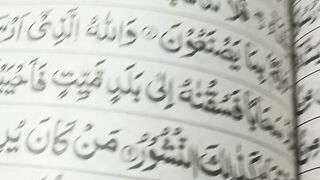 بِمَا يَصْنَعُوْنَ ۞ وَاللّٰهُ الَّذِيْٓ اَرْ
فَسُقْنٰهُ اِلٰى بَلَدٍ مَّيِّتٍ فَاَحْيَيْ
كَذٰلِكَ النُّشُوْرُ ۞ مَنْ كَانَ يُرِ